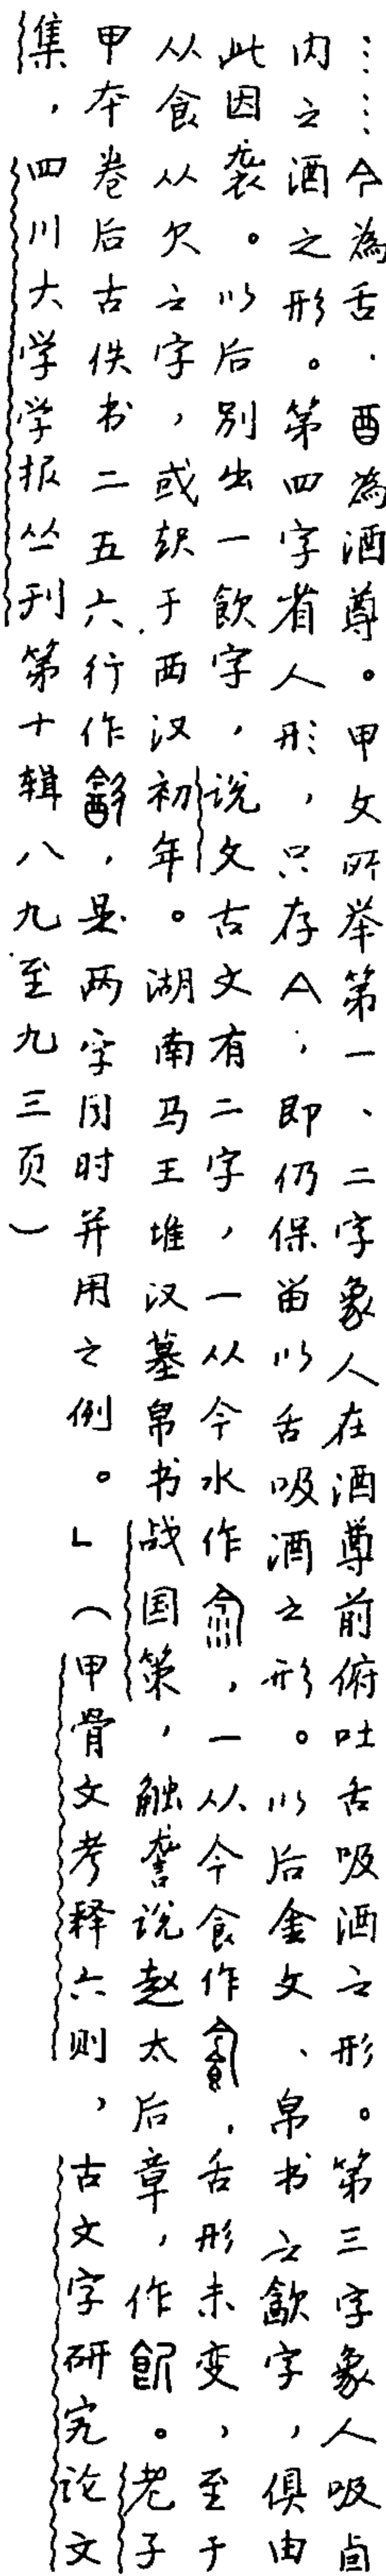 ……亼為舌，酉為酒尊。甲文所举第一、二字象人在酒尊前俯吐舌吸酒之形。第三字象人吸卣
内之酒之形。第四字省人形，只存亼，即仍保留以舌吸酒之形。以后金文、帛书之歙字，俱由
此因袭。以后别出一飲字，说文古文有二字，一从今水作，一从今食作，舌形未变，至于
从食从欠之字，或起于西汉初年。湖南马王堆汉墓帛书战国策，触詟说赵太后章，作飲。老子
甲本卷后古佚书二五六行作，是两字同时并用之例。」（甲骨文考释六则，古文字研究论文
集，四川大学学报丛刊第十辑八九至九三页）